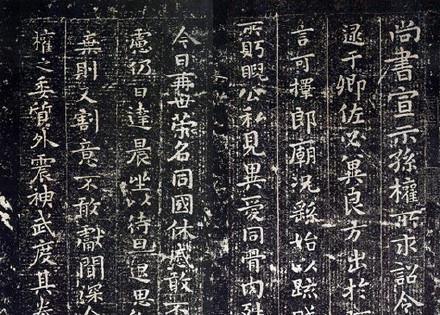 尚書宣示孫權所求詔令
逮于卿佐必冀良方出於
言可擇郎廟況繇始以疏賤
所盼睨公私見異愛同骨肉殊
今日再世榮名同國休慼敢不
慮仍日達晨坐以待旦退思
棄則又割意不敢獻聞深念
權之委質外震神武度其拳